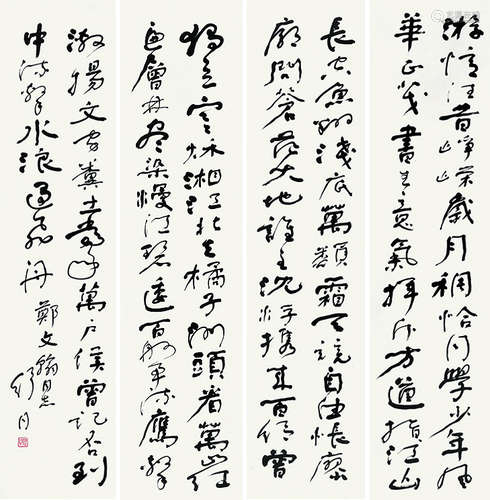 游憶往昔崢嶸歲月稠恰同學少年風
華正茂書生意氣揮斥方遒指江山
長空魚翔淺底萬類霜天競自由悵寥
廓問蒼茫大地誰主沈浮攜來百侶曾
獨立寒秋湘江北去橘子洲頭看萬山紅
遍層林盡染漫江碧透百舸爭流鷹擊
激揚文字糞土當年萬戶侯曾記否到
中流擊水浪遏飛舟 鄭文翰同志 舒同